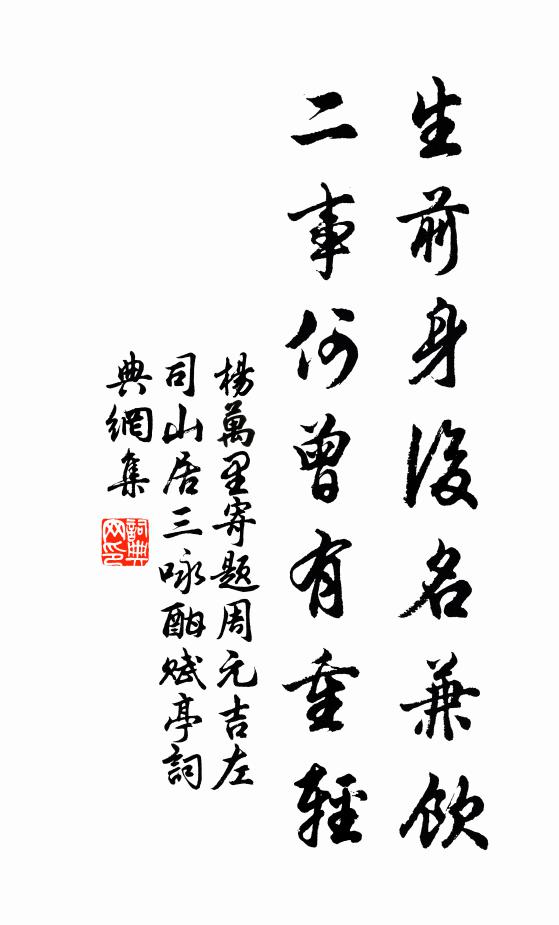 生前身後名兼飲
二事何曾有重輕
楊萬里寄題周元吉左
司山居三咏酣賦亭詞
典網集
詞典
网印